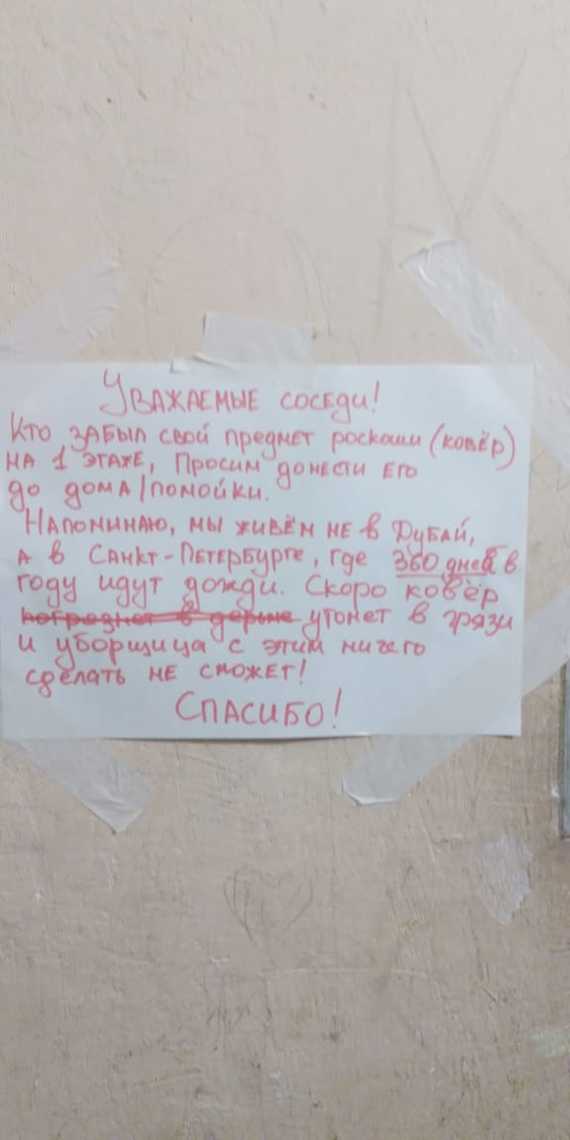 Уважаемые соседи!
Кто забыл свой предмет роскоши (ковёр)
на 1 этаже, просим донести его
до дома/помойки.
Напоминаю, мы живём не в Дубай,
а в Санкт-Петербурге, где 360 дней в
году идут дожди. Скоро ковёр
погрязнет в дерьме утонет в грязи
и уборщица с этим ничего
сделать не сможет!
Спасибо!